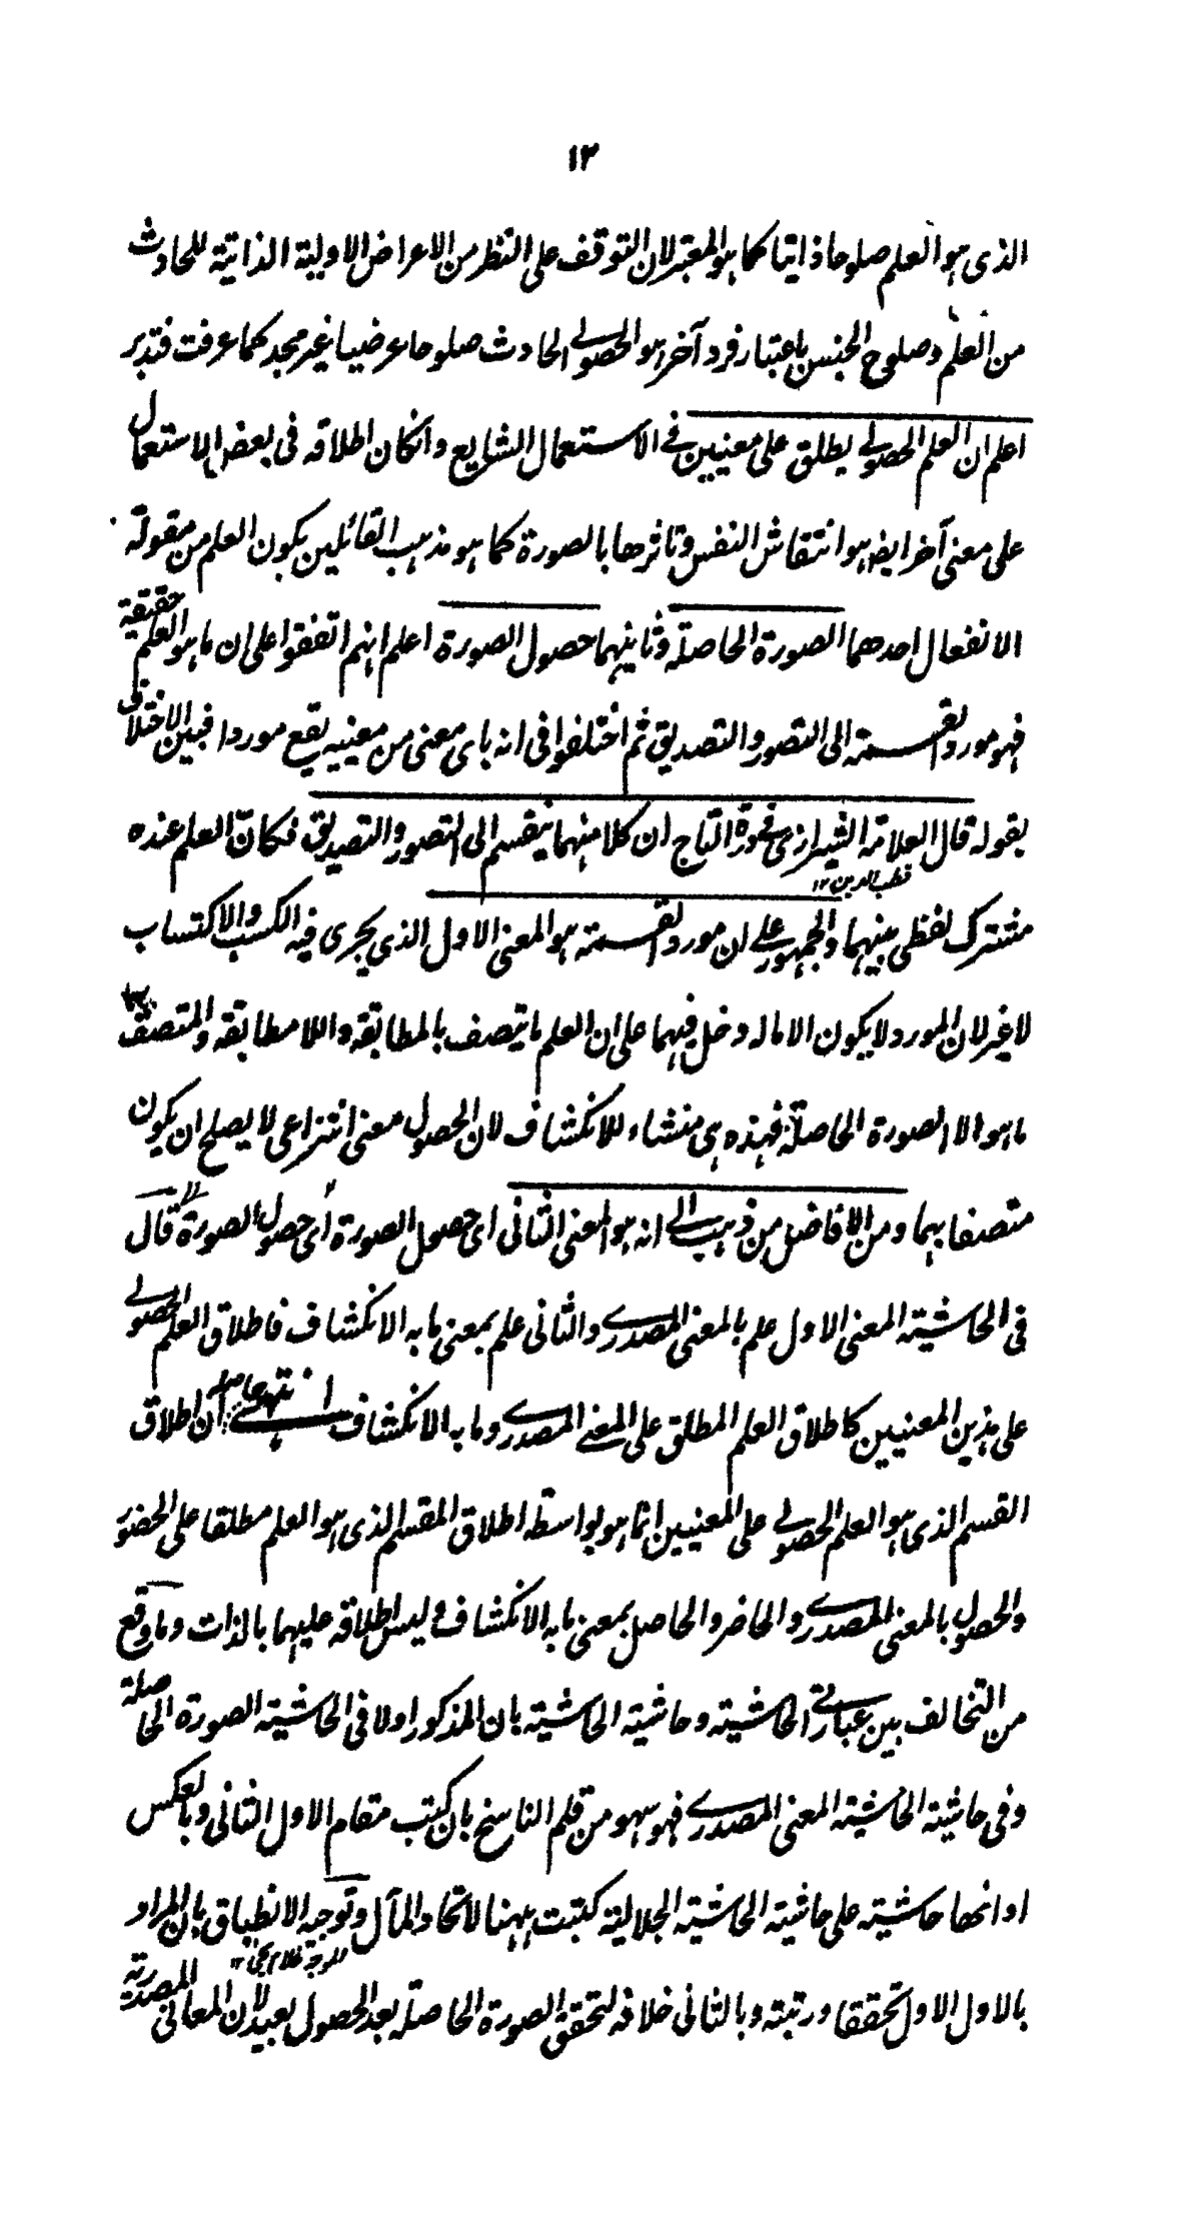 ١٣
الذى هو العلم صلوحا ذاتيا كما هو المعتبر لان التوقف على النظر من الاعراض الاولية الذاتية للحادث
من العلم وصلوح الجنس باعتبار فرد آخر هو الحصولى الحادث صلوحا عرضيا غير مجد كما عرفت فتدبر
اعلم ان العلم الحصولى يطلق على معنيين فى الاستعمال الشايع وانكان اطلاقه فى بعض الاستعمال
على معنى آخر ايضا هو انتقاش النفس وتاثرها بالصورة كما هو مذهب القائلين بكون العلم من مقولة
الانفعال احدهما الصورة الحاصلة وثانيهما حصول الصورة اعلم انهم اتفقوا على ان ما هو العلم حقيقة
فهو مورد القسمة الى التصور والتصديق ثم اختلفوا فى انه باى معنى من معنييه يقع موردا فبين الاختلاف
بقوله قال العلامة الشيرازى فى درة التاج ان كلا منهما ينقسم الى التصور والتصديق فكانّ العلم عنده
قطب الدين ١٢
مشترك لفظى بينهما والجمهور على ان مورد القسمة هو المعنى الاول الذى يجرى فيه الكسب والاكتساب
لا غير لان المورد لا يكون الا ماله دخل فيهما على ان العلم ما يتصف بالمطابقة واللامطابقة والمتصف بهما
ما هو الا الصورة الحاصلة فهذه هى منشاء للانكشاف لان الحصول معنى انتزاعى لا يصلح ان يكون
متصفا بهما ومن الافاضل من ذهب الى انه هو المعنى الثانى اى حصول الصورة اى حصول الصورة قال
فى الحاشية المعنى الاول علم بالمعنى المصدرى والثانى علم بمعنى ما به الانكشاف فاطلاق العلم الحصولى
على هذين المعنيين كاطلاق العلم المطلق على المعنى المصدرى وما به الانكشاف انتهى حاصله ان اطلاق
القسم الذى هو العلم الحصولى على المعنيين انما هو بواسطة اطلاق المقسم الذى هو العلم مطلقا على الحضور
والحصول بالمعنى المصدرى والحاضر والحاصل بمعنى ما به الانكشاف وليس اطلاقه عليهما بالذات وما وقع
من التخالف بين عبارتى الحاشية وحاشية الحاشية بان المذكور اولا فى الحاشية الصورة الحاصلة
وفى حاشية الحاشية المعنى المصدرى فهو سهو من قلم الناسخ بان كتب مقام الاول الثانى وبالعكس
او انها حاشية على حاشية الحاشية الجلالية كتبت ههنا لاتحاد المآل وتوجيه الانطباق بان المراد
بالاول الاول تحققا ورتبة وبالثانى خلافه لتحقق الصورة الحاصلة بعد الحصول بعيد لان المعانى المصدرية